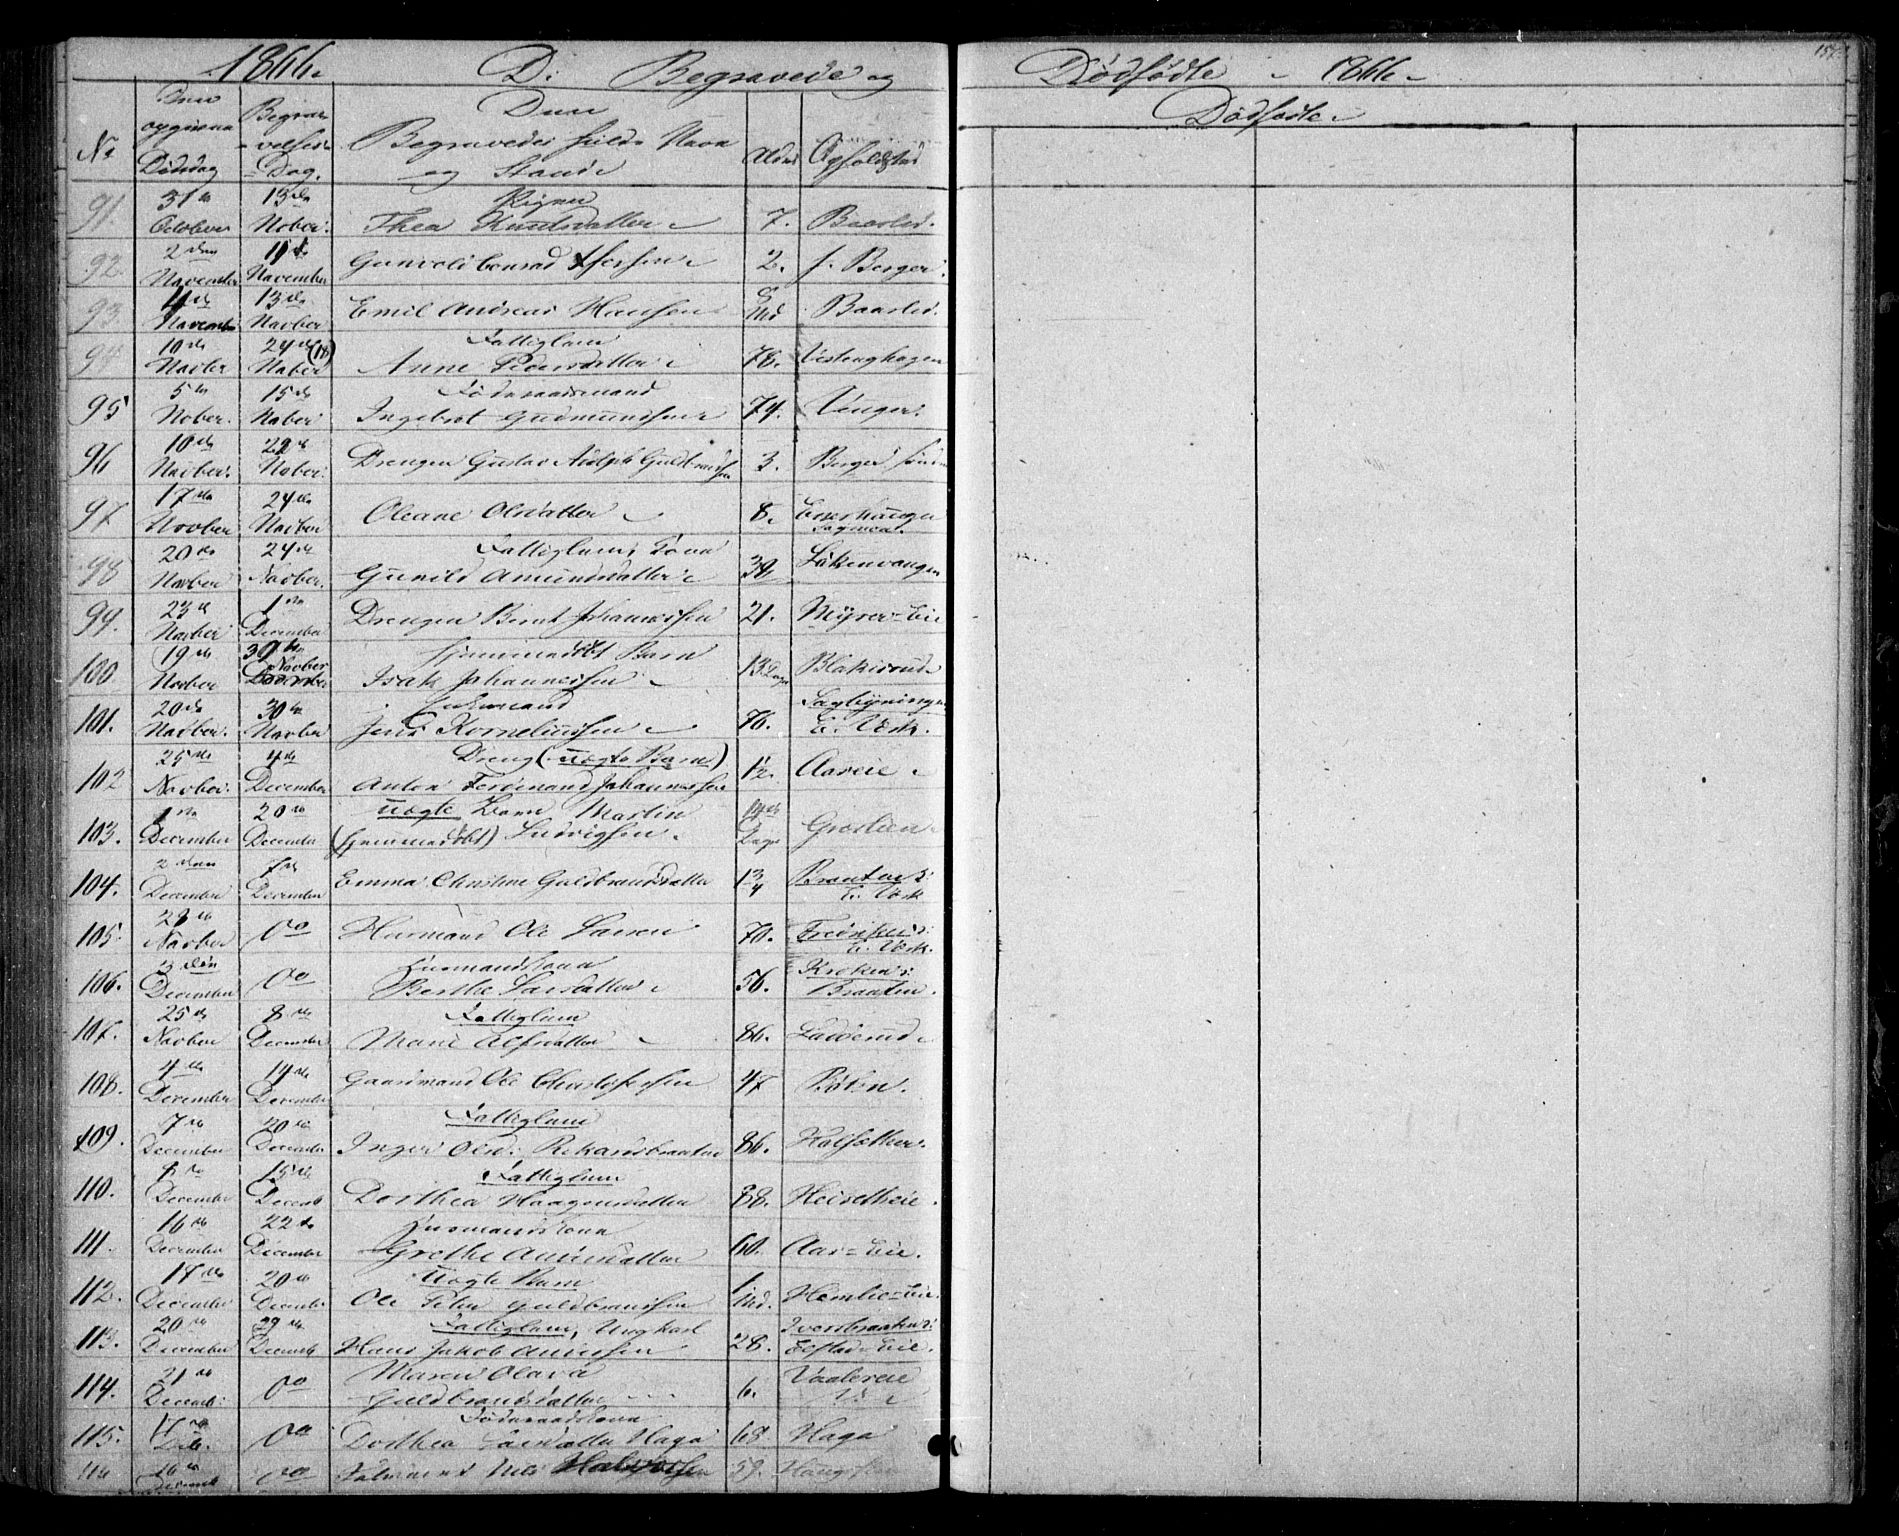 1866. De Begravede og
Dødfødte - 1866 -
157
Dødfødte
No Den opgivne Dødsdag Begravelses Dag. Den Begravedes fulde Navn og Stand Alder Opholdssted
91. 31te October 13de Nobér. Pigen Thea Knudsdatter 7. Baastad.
92. 2den November November Gunvald Conrad 2. s. Berger.
93. November 13de Novber Emil Andreas Hansen 8 Md Baastad.
94 10de Novber 24de (18) Nober Fattiglem Anne Pedersdatter 78. Vestenghagen
95 5te Nober. 15de Nober Føderaadsmand Ingebret Gudmundsen 74. Unger.
96 10de Novber. Nober. Drengen Gustav Adolph Guldbrandsen 3. Berger søndre
97 17de Novber 24de Novber Oleane Olsdatter 8.
98 20de Novber 24de Novber. Fattiglem, Kone Gunild Amundsdatter 39 Løkenvangen
99. 23de Novber 1ste December Drengen Bernt Johannessen 21. Myrer-Eie
100 19de Novber 30te Novber hjemmedøbt Barn Isak Johannessen 13 Dage Blakisrud
101. 20de Novber. 30te Novber Enkemand Jens Korneliussen 76. E. Værk.
102 25de Novber. 4de December Dreng (uægte Barn) Anton Ferdinand Johannessen 1½. Aaseie
103. 1ste December 20de December uægte Barn Martin (hjemmedøbt) Ludvigsen 14de Dage
104. 2den December 7de December Emma Christine Guldbrandsdatter 1¾ Braaten v: E. Værk
105. Novber Do Huusmand Ole Larsen 70. E. Værk.
106. 3den December Do Huusmandskone Berthe Larsdatter 56. Kroken v: Braaten.
107. 25de Novber 8de December Fattiglem Mari Olsdatter 86. Ladderud
108. 4de December 14de December Gaardmand Ole Christophersen 47 Bølen.
109. 7de December 20de December Fattiglem Inger Olsd: Rikardsbraaten 86. Halsæther.
110. December 15de Decemb Fattiglem Dorthea Haagensdatter 88.
111. 16de December 22de December Huusmandskone Grethe Andersdatter 60. Aas-Eie.
112. December 20de December Uægte Barn Ole Peter Guldbrandsen 1 Md. Hemlie-Eie.
113. 20de December 29de Decemb Fattiglem, Ungkarl Hans Jakob Andersen 28. Iversbraaten v: Eie.
114. 21de Decemb: Do Maren Olava Guldbrandsdatter 6. Vaalereie
115. Do Føderaadskone Dorthea Larsdatter Haga 68. Haga
116 16de Decemb Do Nils Halvorsen 59.